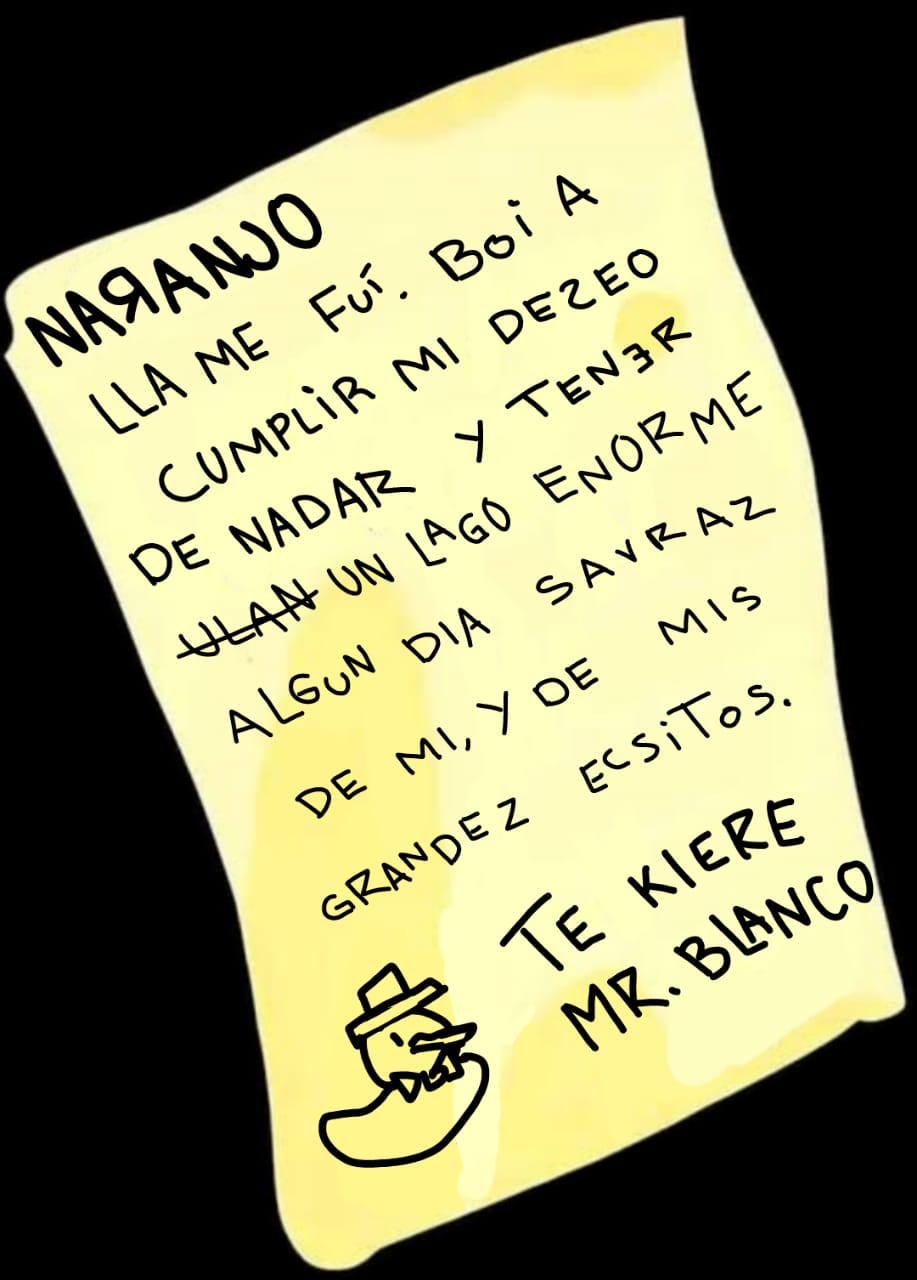 NARANJO
LLA ME FUÍ. BOI A
CUMPLIR MI DEZEO
DE NADAR Y TENER
ULAN UN LAGO ENORME
ALGUN DIA SAVRAZ
DE MI, Y DE MIS
GRANDEZ ECSITOS.
TE KIERE
MR. BLANCO